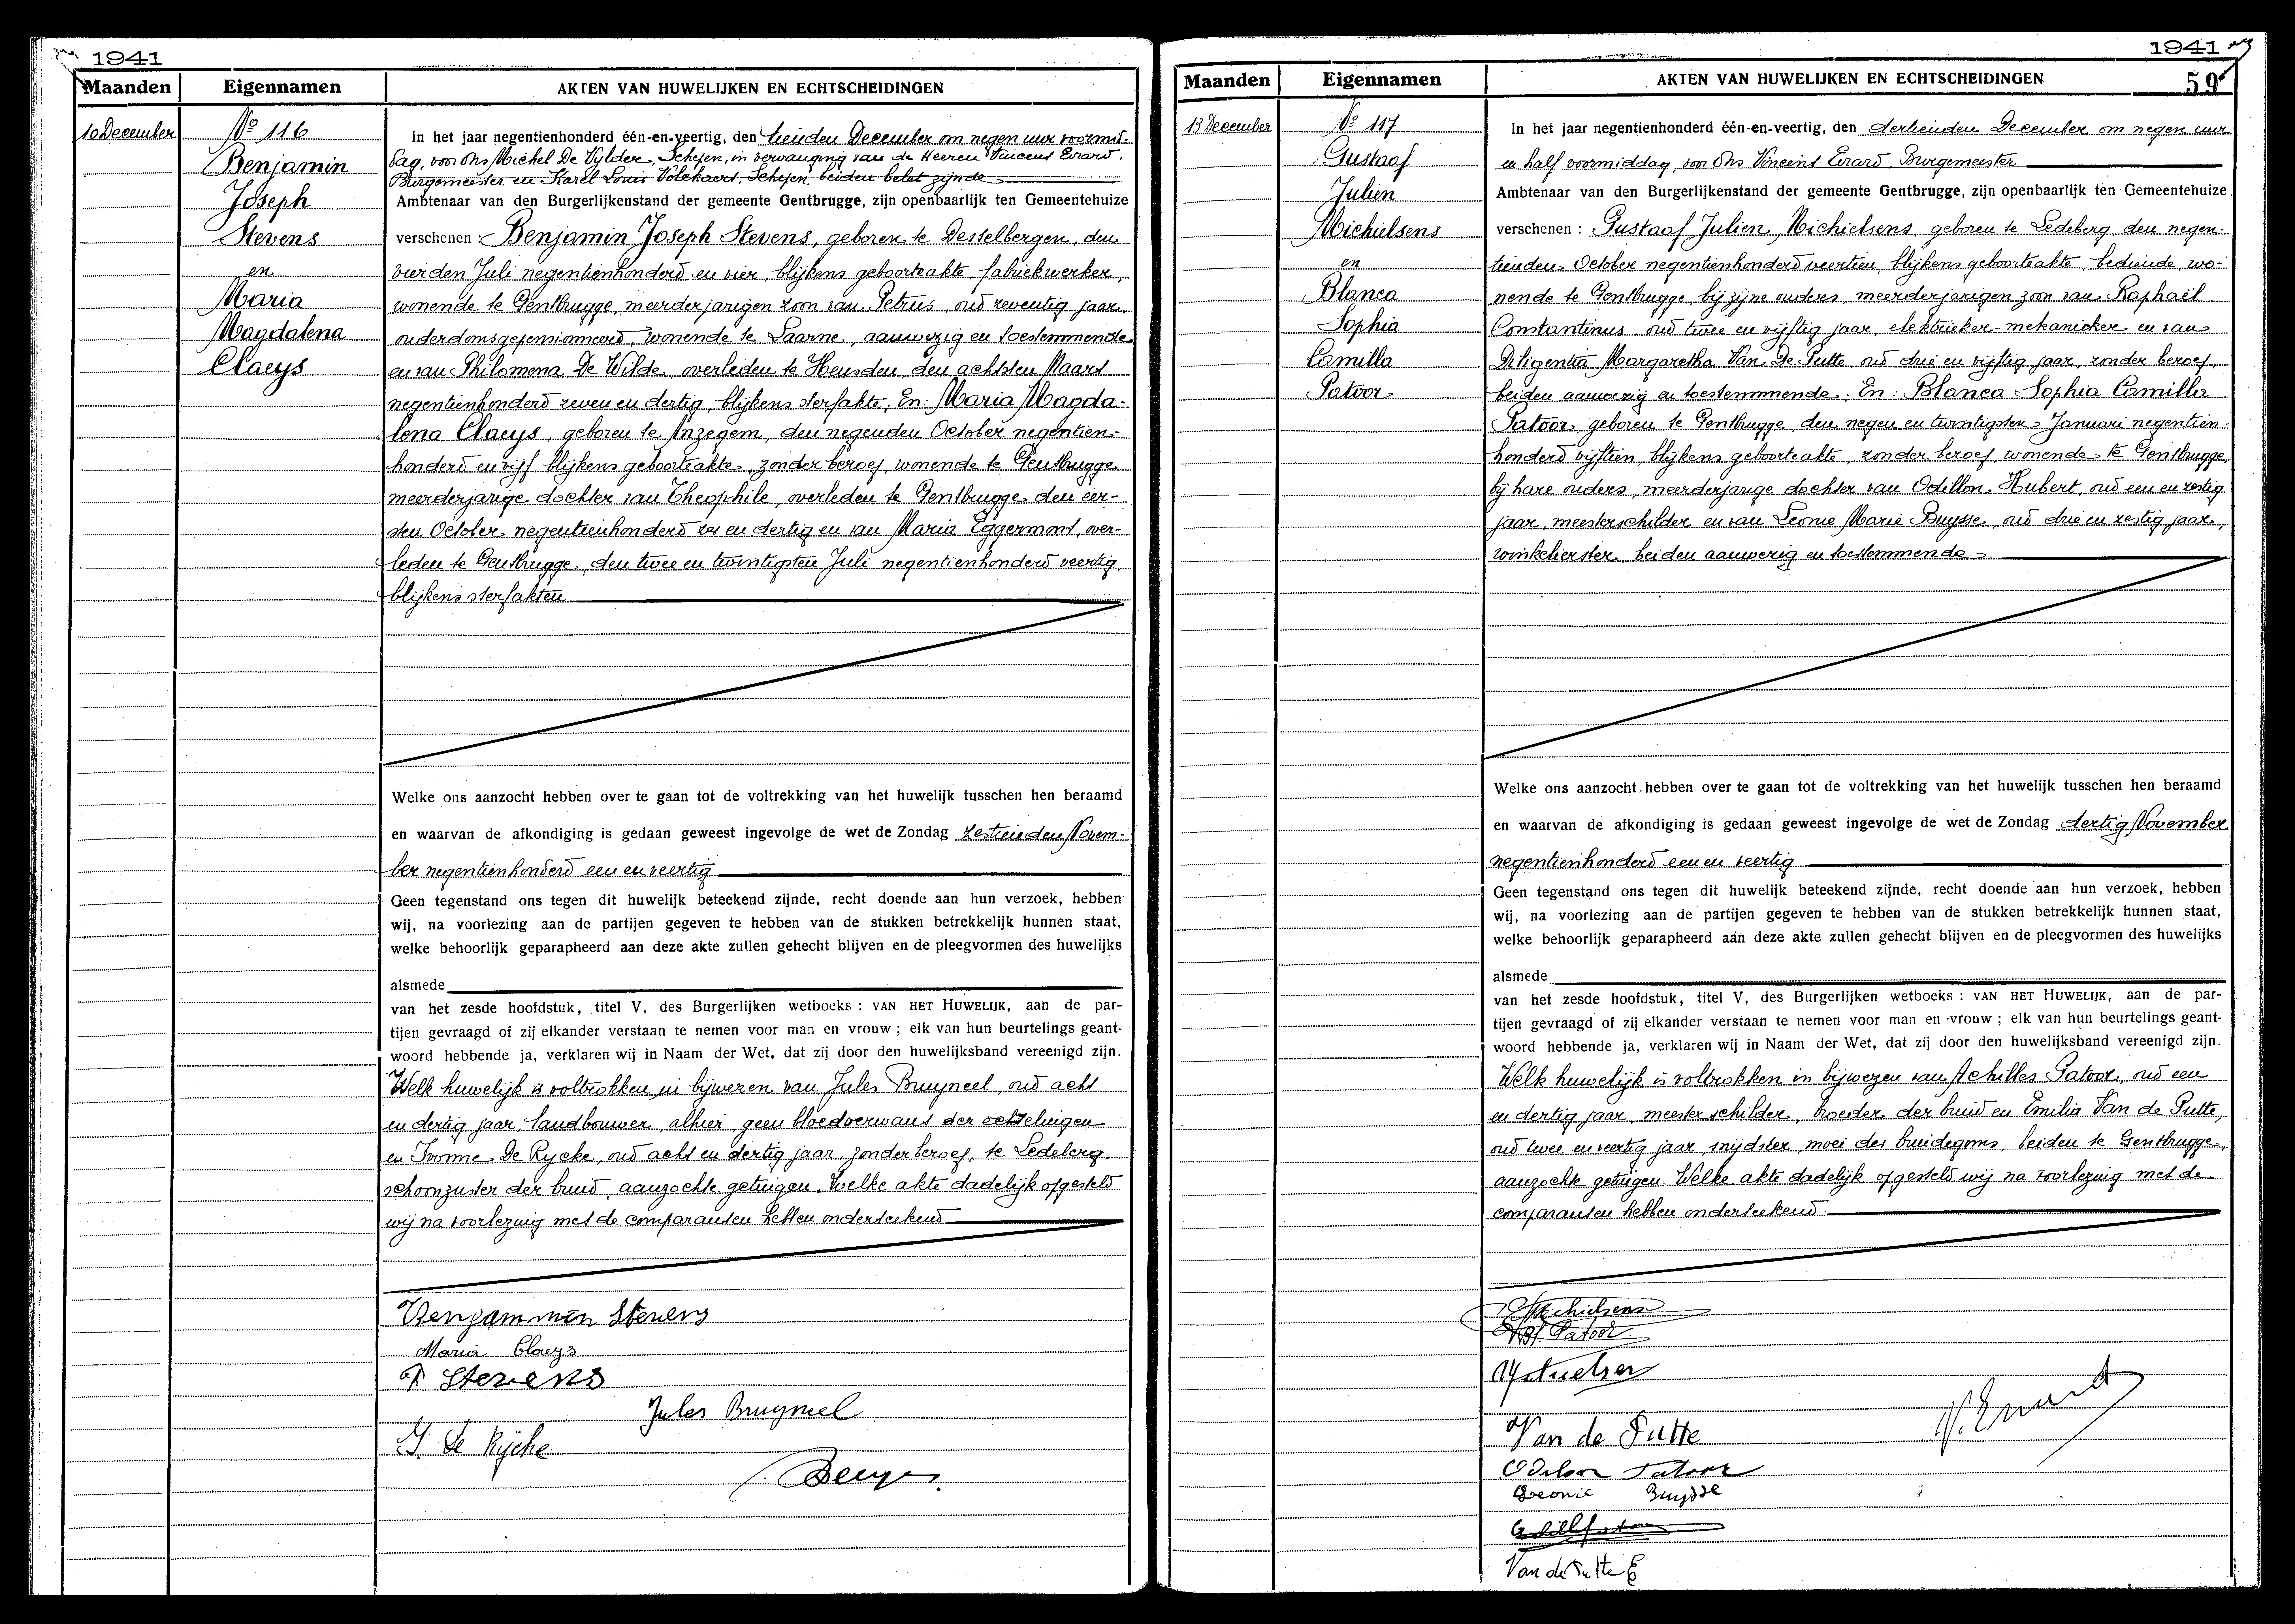 1941
Maanden
Eigennamen
AKTEN VAN HUWELIJKEN EN ECHTSCHEIDINGEN
10 December
No 116
Benjamin
Joseph
Stevens
en
Maria
Magdalena
Claeys
In het jaar negentienhonderd één-en-veertig, den tienden December om negen uur voormid-
dag, voor Ons Michel De Vylder, Schepen, in vervanging van de Heeren Vincent Erard,
Burgemeester en Karel Louis Volckaert, Schepen, beiden belet zijnde
Ambtenaar van den Burgerlijkenstand der gemeente Gentbrugge, zijn openbaarlijk ten Gemeentehuize
verschenen : Benjamin Joseph Stevens, geboren te Destelbergen, den
vierden Juli negentienhonderd en vier, blijkens geboorteakte, fabriekwerker,
wonende te Gentbrugge, meerderjarigen zoon van Petrus, oud zeventig jaar,
ouderdomsgepensionneerd, wonende te Laarne, aanwezig en toestemmende
en van Philomena De Wilde, overleden te Heusden, den achtsten Maart
negentienhonderd zeven en dertig, blijkens sterfakte; En: Maria Magda-
lena Claeys, geboren te Anzegem, den negenden October negentien-
honderd en vijf blijkens geboorteakte, zonder beroep, wonende te Gentbrugge,
meerderjarige dochter van Theophile, overleden te Gentbrugge den eer-
sten October negentienhonderd zes en dertig en van Maria Eggermont, over-
leden te Gentbrugge, den twee en twintigsten Juli negentienhonderd veertig,
blijkens sterfakten
Welke ons aanzocht hebben over te gaan tot de voltrekking van het huwelijk tusschen hen beraamd
en waarvan de afkondiging is gedaan geweest ingevolge de wet de Zondag zestienden Novem-
ber negentienhonderd een en veertig
Geen tegenstand ons tegen dit huwelijk beteekend zijnde, recht doende aan hun verzoek, hebben
wij, na voorlezing aan de partijen gegeven te hebben van de stukken betrekkelijk hunnen staat,
welke behoorlijk geparapheerd aan deze akte zullen gehecht blijven en de pleegvormen des huwelijks
alsmede
van het zesde hoofdstuk, titel V, des Burgerlijken wetboeks : VAN HET HUWELIJK, aan de par-
tijen gevraagd of zij elkander verstaan te nemen voor man en vrouw ; elk van hun beurtelings geant-
woord hebbende ja, verklaren wij in Naam der Wet, dat zij door den huwelijksband vereenigd zijn.
Welk huwelijk is voltrokken in bijwezen van Jules Bruyneel, oud acht
en dertig jaar, landbouwer, alhier, geen bloedverwant der echtelingen
en Ivonne De Rycke, oud acht en dertig jaar, zonder beroep, te Ledeberg,
schoonzuster der bruid, aanzochte getuigen. Welke akte dadelijk opgesteld
wij na voorlezing met de comparanten hebben onderteekend
Benjammen Stevens
Maria Claeys
P Stevens
Jules Bruyneel
Y De Rijcke
1941
59
Maanden
Eigennamen
AKTEN VAN HUWELIJKEN EN ECHTSCHEIDINGEN
13 December
No 117
Gustaaf
Julien
Michielsens
en
Blanca
Sophia
Camilla
Patoor
In het jaar negentienhonderd één-en-veertig, den dertienden December om negen uur
en half voormiddag, voor Ons Vincent Erard, Burgemeester
Ambtenaar van den Burgerlijkenstand der gemeente Gentbrugge, zijn openbaarlijk ten Gemeentehuize
verschenen : Gustaaf Julien Michielsens, geboren te Ledeberg, den negen-
tienden October negentienhonderd veertien, blijkens geboorteakte, bediende, wo-
nende te Gentbrugge bij zijne ouders, meerderjarigen zoon van Raphaël
Constantinus, oud twee en vijftig jaar, elektrieker-mekanieker en van
Diligentia Margaretha Van De Putte, oud drie en vijftig jaar, zonder beroep,
beiden aanwezig en toestemmende; En: Blanca Sophia Camilla
Patoor, geboren te Gentbrugge, den negen en twintigsten Januari negentien-
honderd vijftien, blijkens geboorteakte, zonder beroep, wonende te Gentbrugge,
bij hare ouders, meerderjarige dochter van Odillon Hubert, oud een en zestig
jaar, meesterschilder en van Leonie Marie Buysse, oud drie en zestig jaar,
winkelierster, beiden aanwezig en toestemmende
Welke ons aanzocht hebben over te gaan tot de voltrekking van het huwelijk tusschen hen beraamd
en waarvan de afkondiging is gedaan geweest ingevolge de wet de Zondag dertig November
negentienhonderd een en veertig
Geen tegenstand ons tegen dit huwelijk beteekend zijnde, recht doende aan hun verzoek, hebben
wij, na voorlezing aan de partijen gegeven te hebben van de stukken betrekkelijk hunnen staat,
welke behoorlijk geparapheerd aan deze akte zullen gehecht blijven en de pleegvormen des huwelijks
alsmede
van het zesde hoofdstuk, titel V, des Burgerlijken wetboeks : VAN HET HUWELIJK, aan de par-
tijen gevraagd of zij elkander verstaan te nemen voor man en vrouw ; elk van hun beurtelings geant-
woord hebbende ja, verklaren wij in Naam der Wet, dat zij door den huwelijksband vereenigd zijn.
Welk huwelijk is voltrokken in bijwezen van Achilles Patoor, oud een
en dertig jaar, meester schilder, broeder der bruid en Emilia Van de Putte,
oud twee en veertig jaar, snijdster, moei des bruidegoms, beiden te Gentbrugge,
aanzochte getuigen. Welke akte dadelijk opgesteld wij na voorlezing met de
comparanten hebben onderteekend.
Michielsens
Patoor
Van de Putte
V. Erard
Odilon Patoor
Leonie Buysse
Van de Putte E